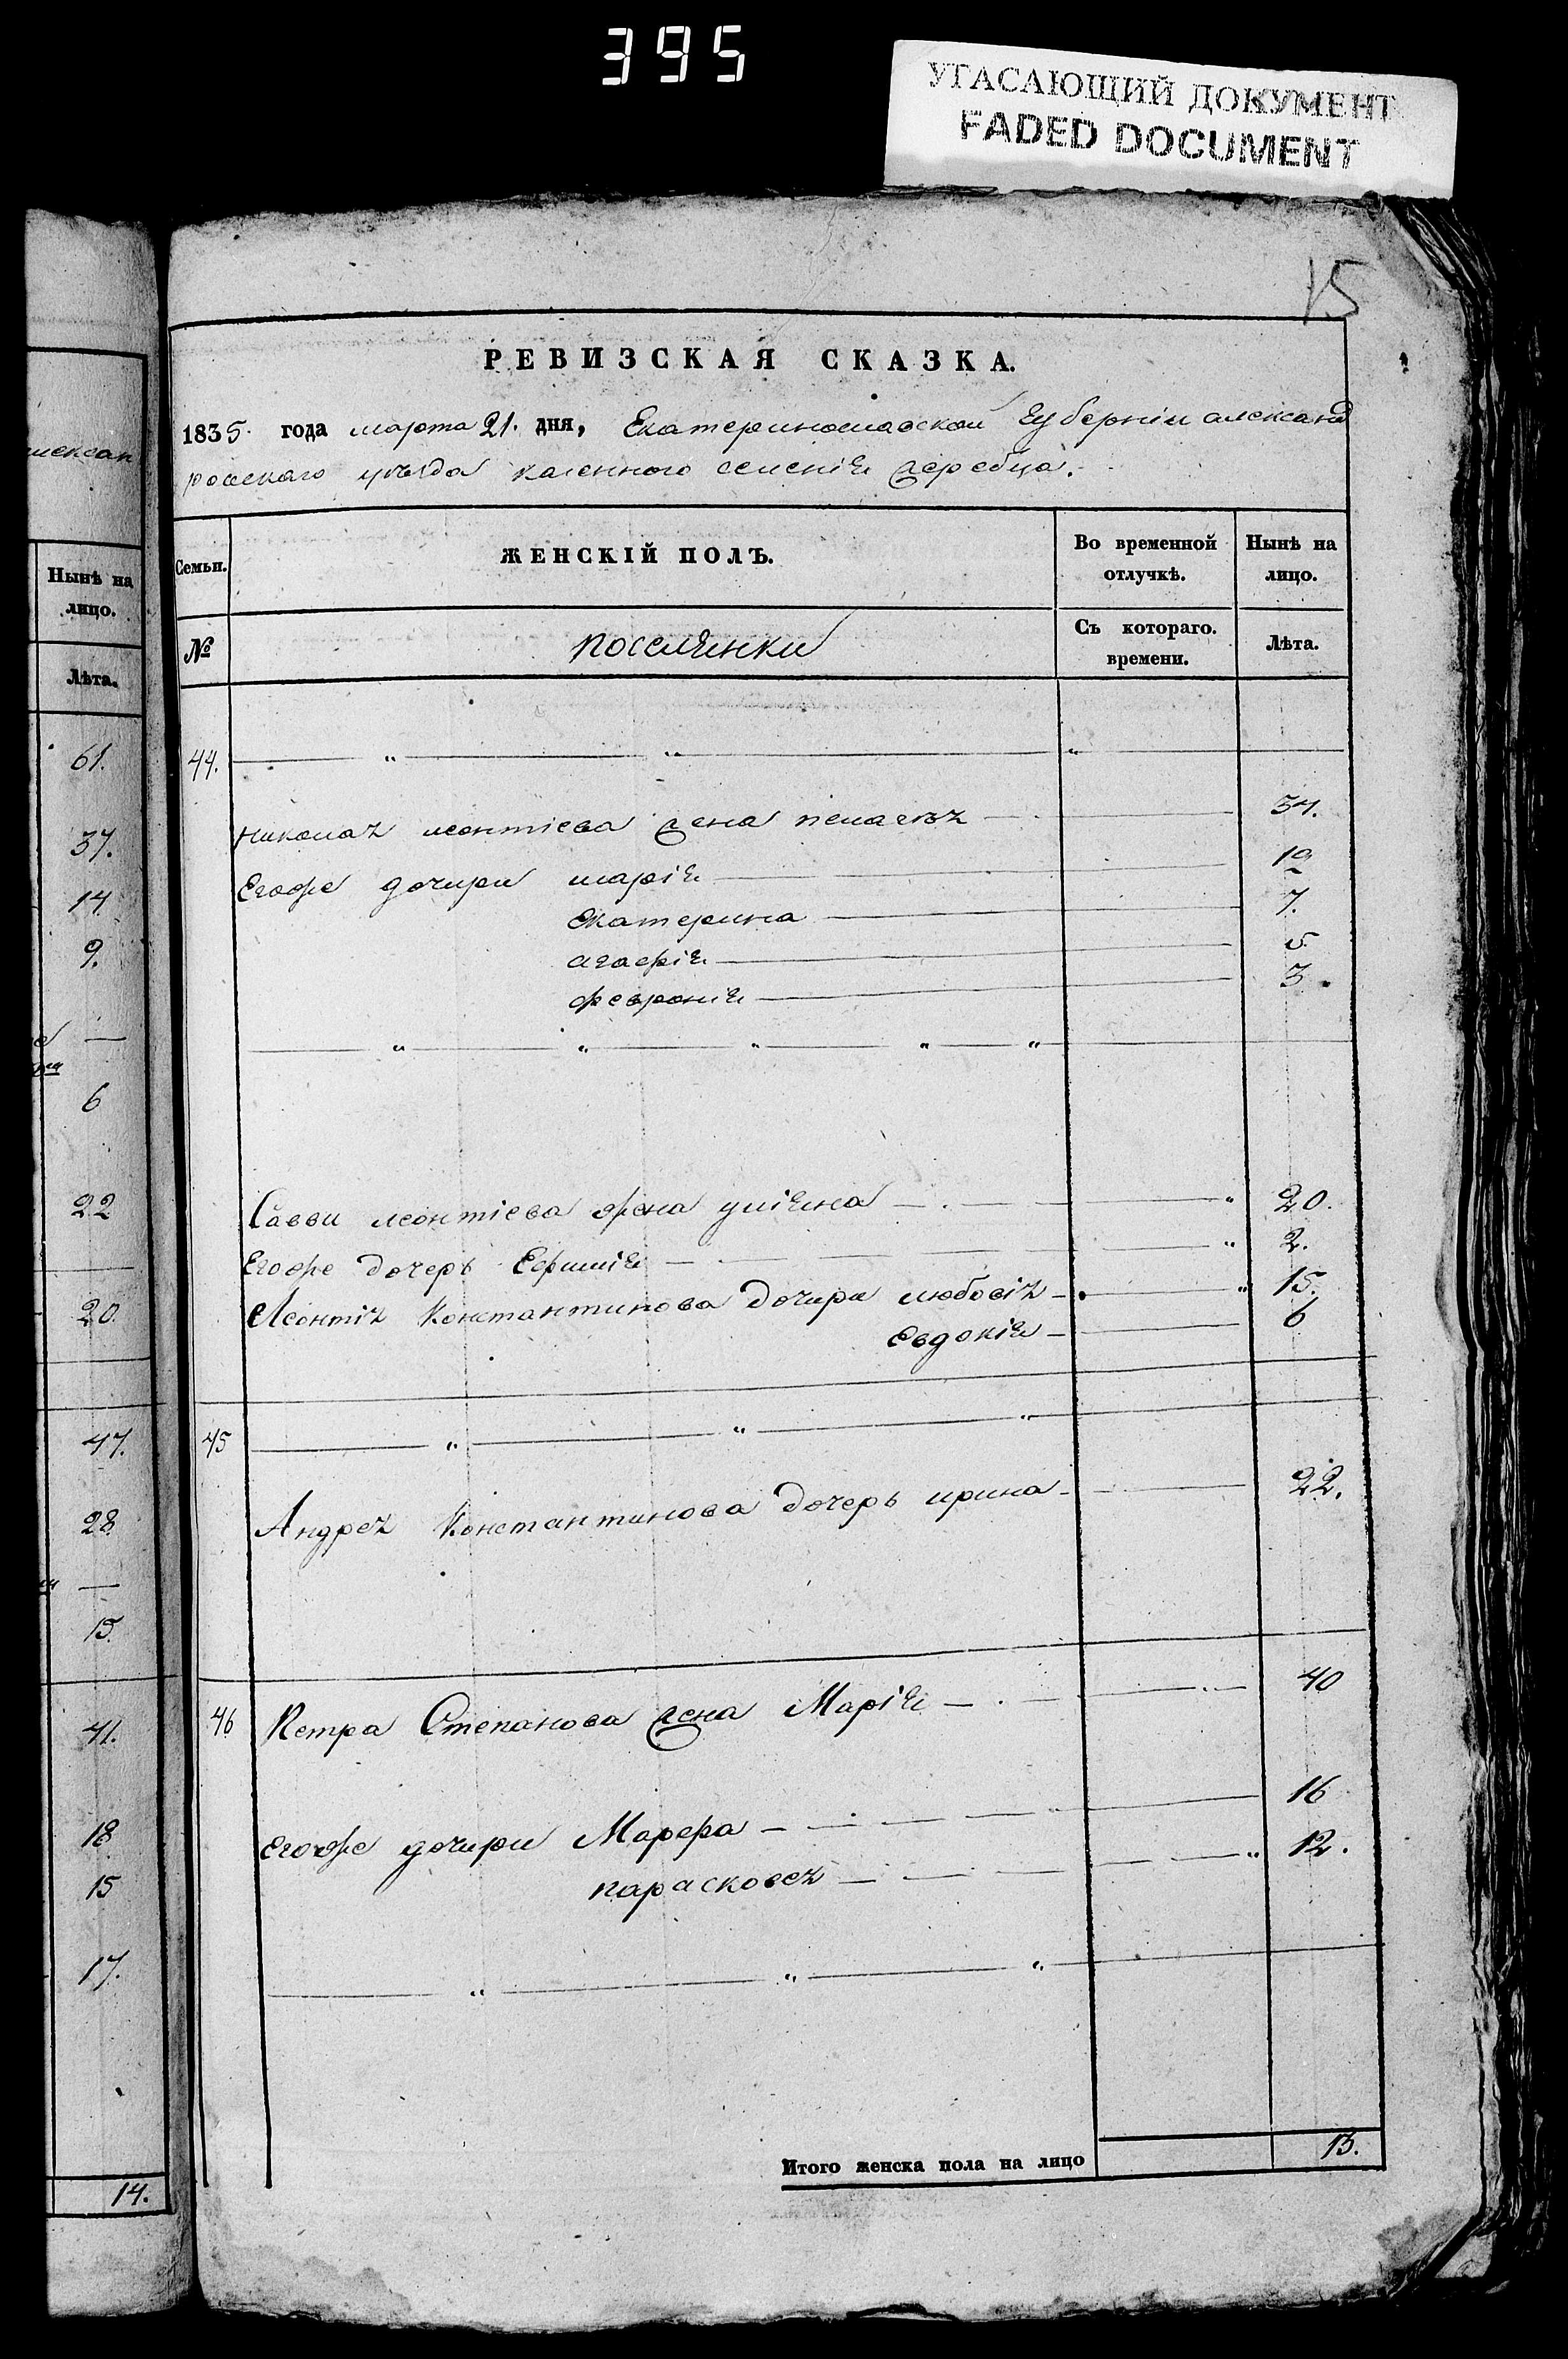 395
УГАСАЮЩИЙ ДОКУМЕНТ
FADED DOCUMENT
15
РЕВИЗСКАЯ СКАЗКА.
1835. года марта 21. дня, Екатеринославской Губерніи александ
ровскаго уѣзда казенного селенія жеребца.
Семьи. ЖЕНСКІЙ ПОЛЪ. Во временной отлучкѣ. Нынѣ на лицо.
№ поселянки Съ котораго. времени. Лѣта.
44.
Николая леонтіева жена пелагея 34.
Егоже дочири марія 12
Екатерина 7.
агафія 5
февронія 3.
Савви леонтіева жена уліяна 20.
Егоже дочерь Ефимія 2.
Леонтія Константинова дочири любовія 15.
Евдокія 6
45
Андрея Константинова дочерь ирина 22.
46 Петра Степанова жена Марія 40
Егоже дочири Марфа 16
парасковея 12.
Итого женска пола на лицо 13.
мексан
Нынѣ на
лицо.
Лѣта.
61.
37.
14
9.
6
22
20.
47.
28
15.
41.
18
15
17.
14.